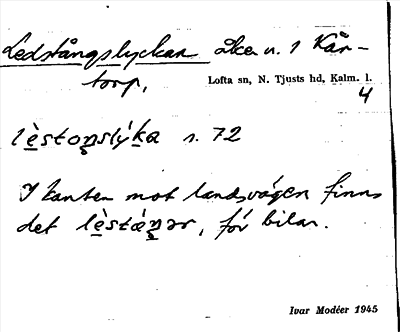 Ledstångslyckan åker n. 1 Kår-
torp,
Lofta sn, N. Tjusts hd, Kalm. l.
4
lèstoŋslýka s. 72
I kanten mot landsvägen finns
det lèstáŋər, för bilar.
Ivar Modéer 1945